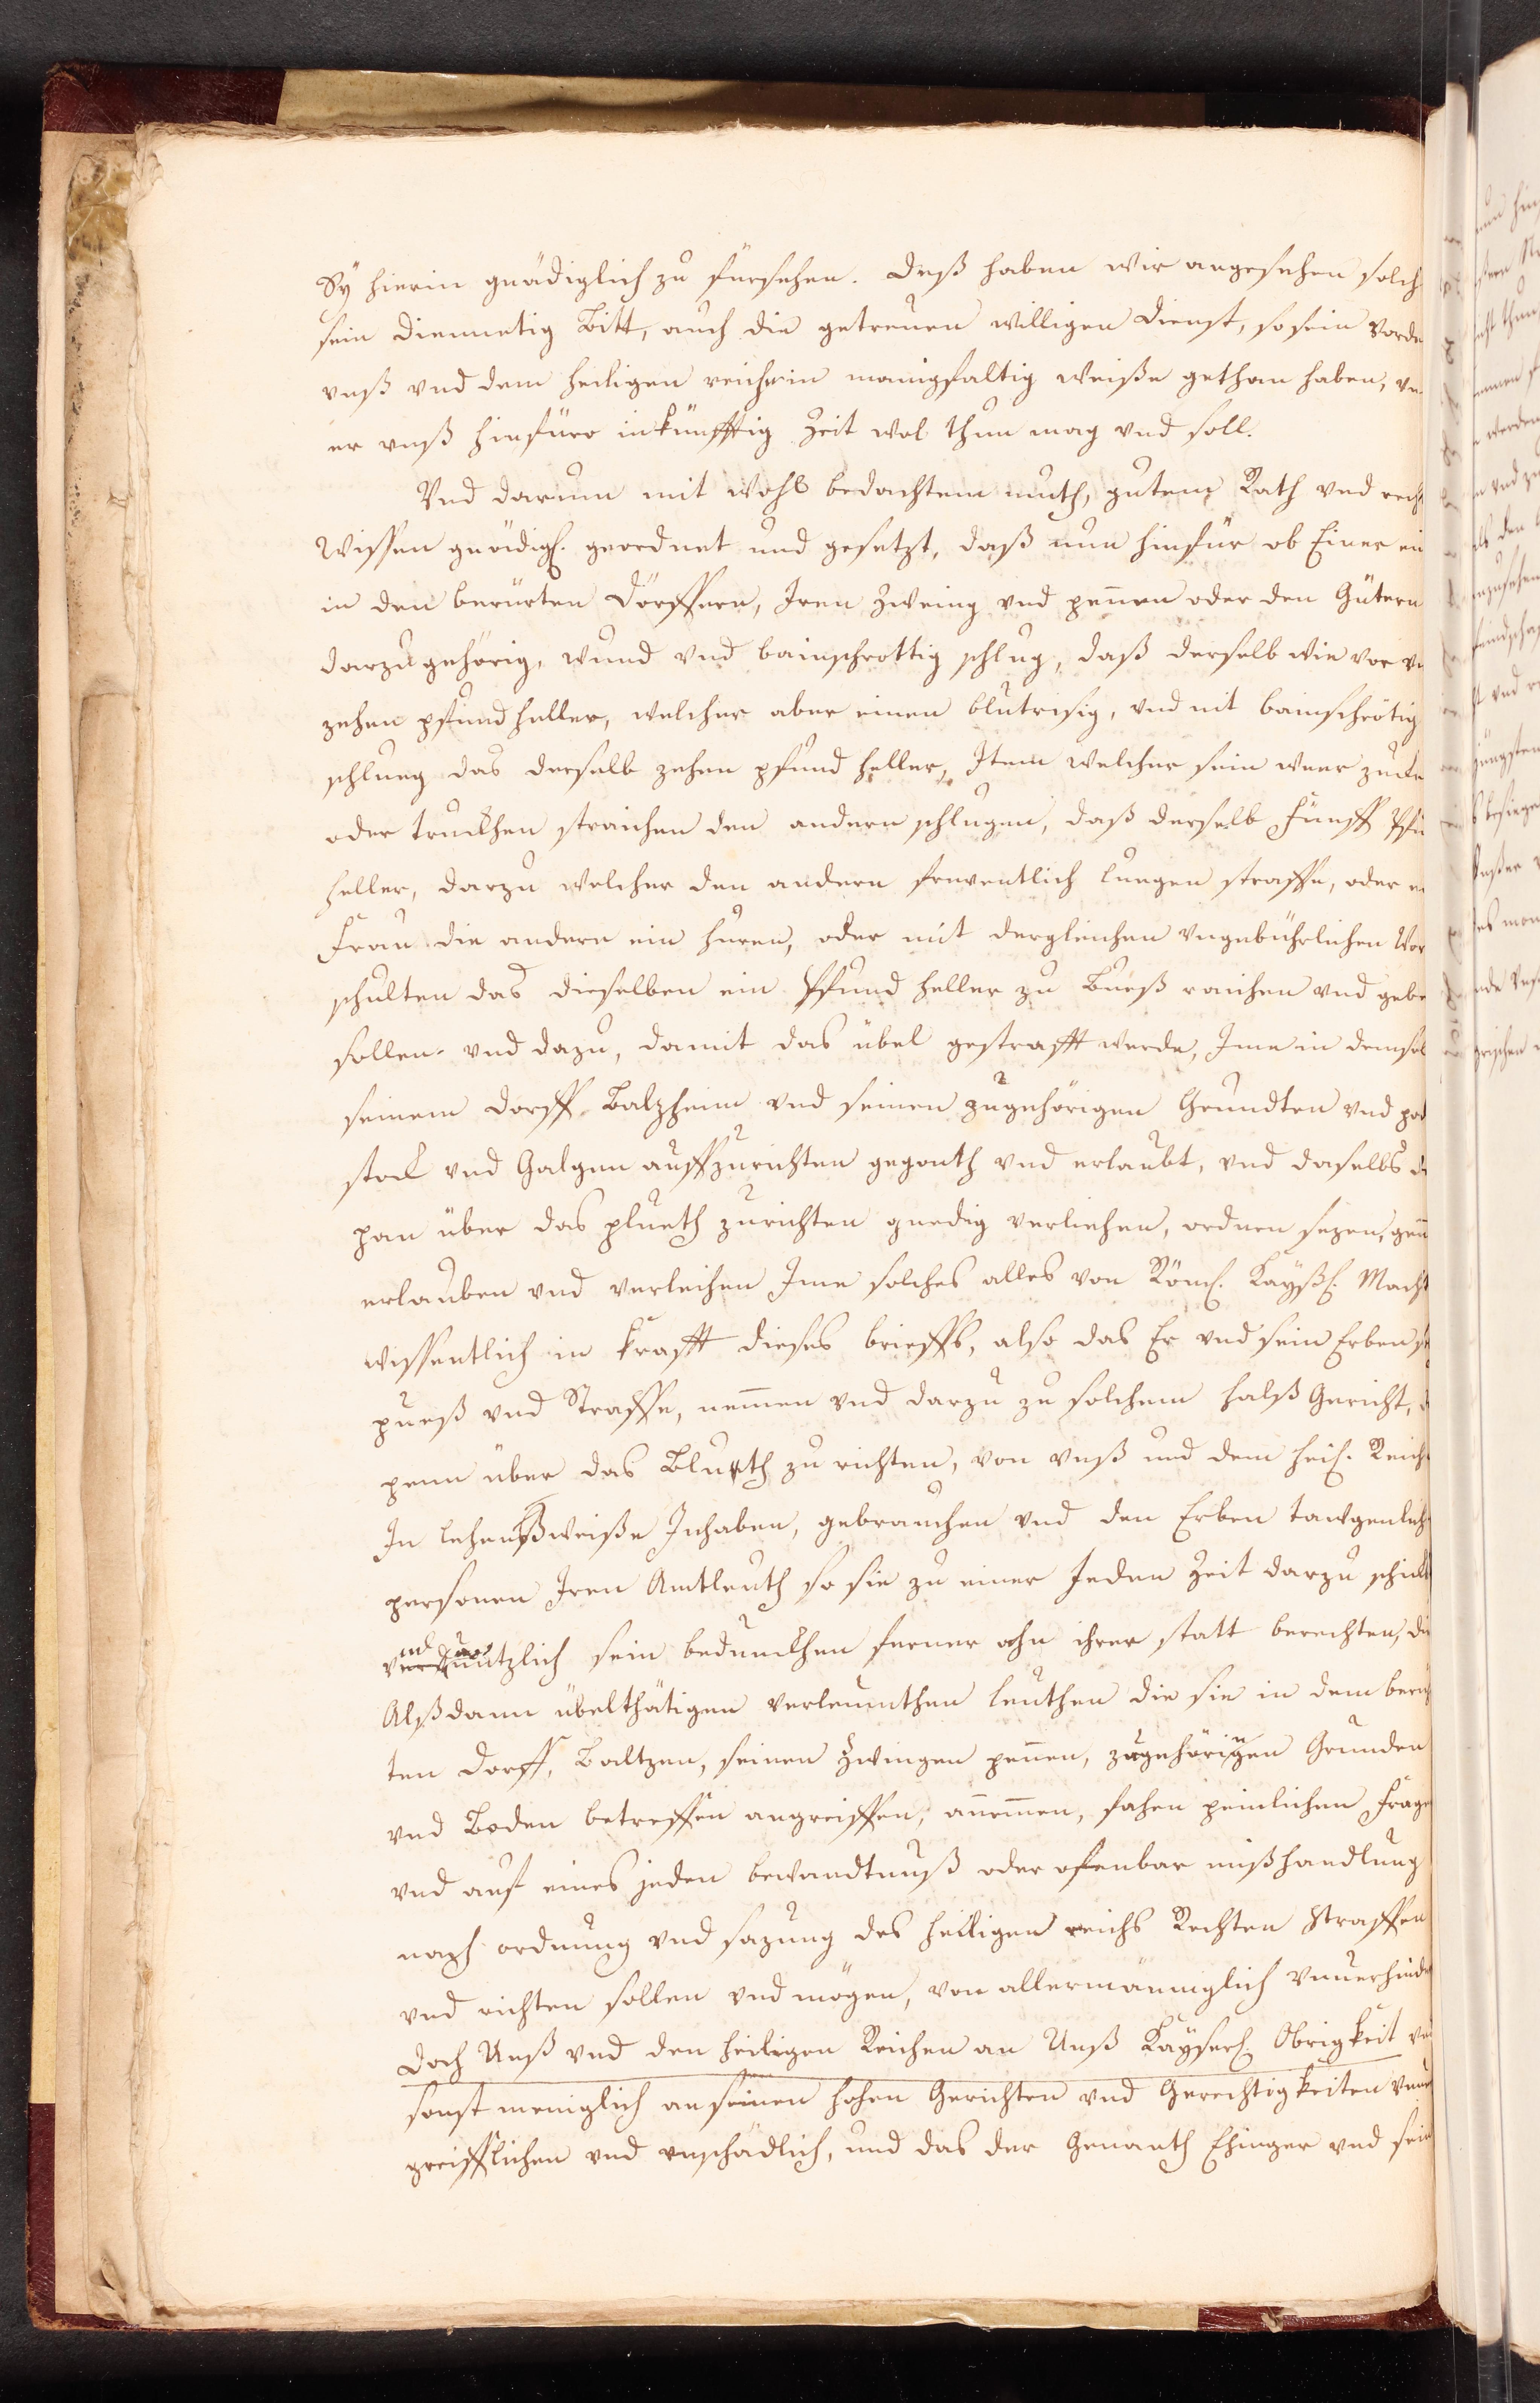 Sÿ hierin gnädiglich zu fürsehen. Deß haben wir angesehen solch
sein diemuetig Bitt, auch die getreuen willigen Dienst, so sein Vorde
vnß vnd dem heiligen reich in mannigfaltig weiße gethan haben, vn
er vnß hinfüro in künfftig Zeit wol thun mag vnd soll.
Vnd darum mit wohl bedachtem muth, gutem Rath vnd rech
Wissen gnädigl. geordnet und gesetzt, daß nun hinfür ob Einer ein
in den berürten Dörffern, Iren Zweing vnd pennen oder den Gütern
darzugehörig, wund vnd bainschrottig schlug, daß derselb wie vor
zehen pfund heller, welcher aber einen blutrisig, vnd nit bainschrötig
schlueg das derselb zehen pfund heller, Item welcher sein weer zuckh
oder truckhen straichen den andern schlugen, daß derselb Fünff Pfu
heller, darzu welcher den andern freuentlich lungen straffe, oder ein
Frau die andern ein huren, oder mit dergleichen vngebührlichen Wor
schulten das dieselben ein Pfund heller zu Bueß raichen vnd gebe
sollen. vnd dazu, damit das übel gestrafft werde, Ime in demsel
seinem Dorff Balzheim vnd seinen zugehörigen Grundten vnd pod
stock vnd Galgen auffzurichten gegonth vnd erlaubt, vnd daselbs de
pan über das plueth zurichten gnedig verliehen, ordnen sezen, gön
erlauben vnd verleihen Ime solches alles von Röml. Kayßl. Macht
wissentlich in krafft dieses brieffs, also das Er vnd sein Erben
pueß vnd Straffe, nemmen vnd darzu zu solchem halß Gericht,
penn über das Blueth zu richten, von vnß und dem heil. Reich
In lehenßweiße Inhaben, gebrauchen vnd den Erben tawgenlich
personen Iren Amtleuth so sie zu einer Jeden Zeit darzu schick
nutzlich sein bedunckhen ferner ahn ihrer statt berechten, die
Alßdann übelthätigen verleumthen leuthen die sie in dem berüh
ten Dorff, Baltzen, seinen Zwingen pennen, zugehörigen Grunden
vnd Boden betreffen angreiffen, annemmen, fahen peinlichen Frage
vnd auf eines jeden bewandtnuß oder ofenbar mißhandlung
nach ordnung vnd sazung des heiligen reichs Rechten Straffen
vnd richten sollen vnd mögen, von allermänniglich vnuerhinde
Doch Unß vnd den heiligen Reichen an Unß Kayserl. Obrigkeit vn
sonst meniglich an seinen hohen Gerichten vnd Gerechtigkeiten vnue
greifflichen vnd vnschädlich, und das der Genanth Ehinger vnd sein